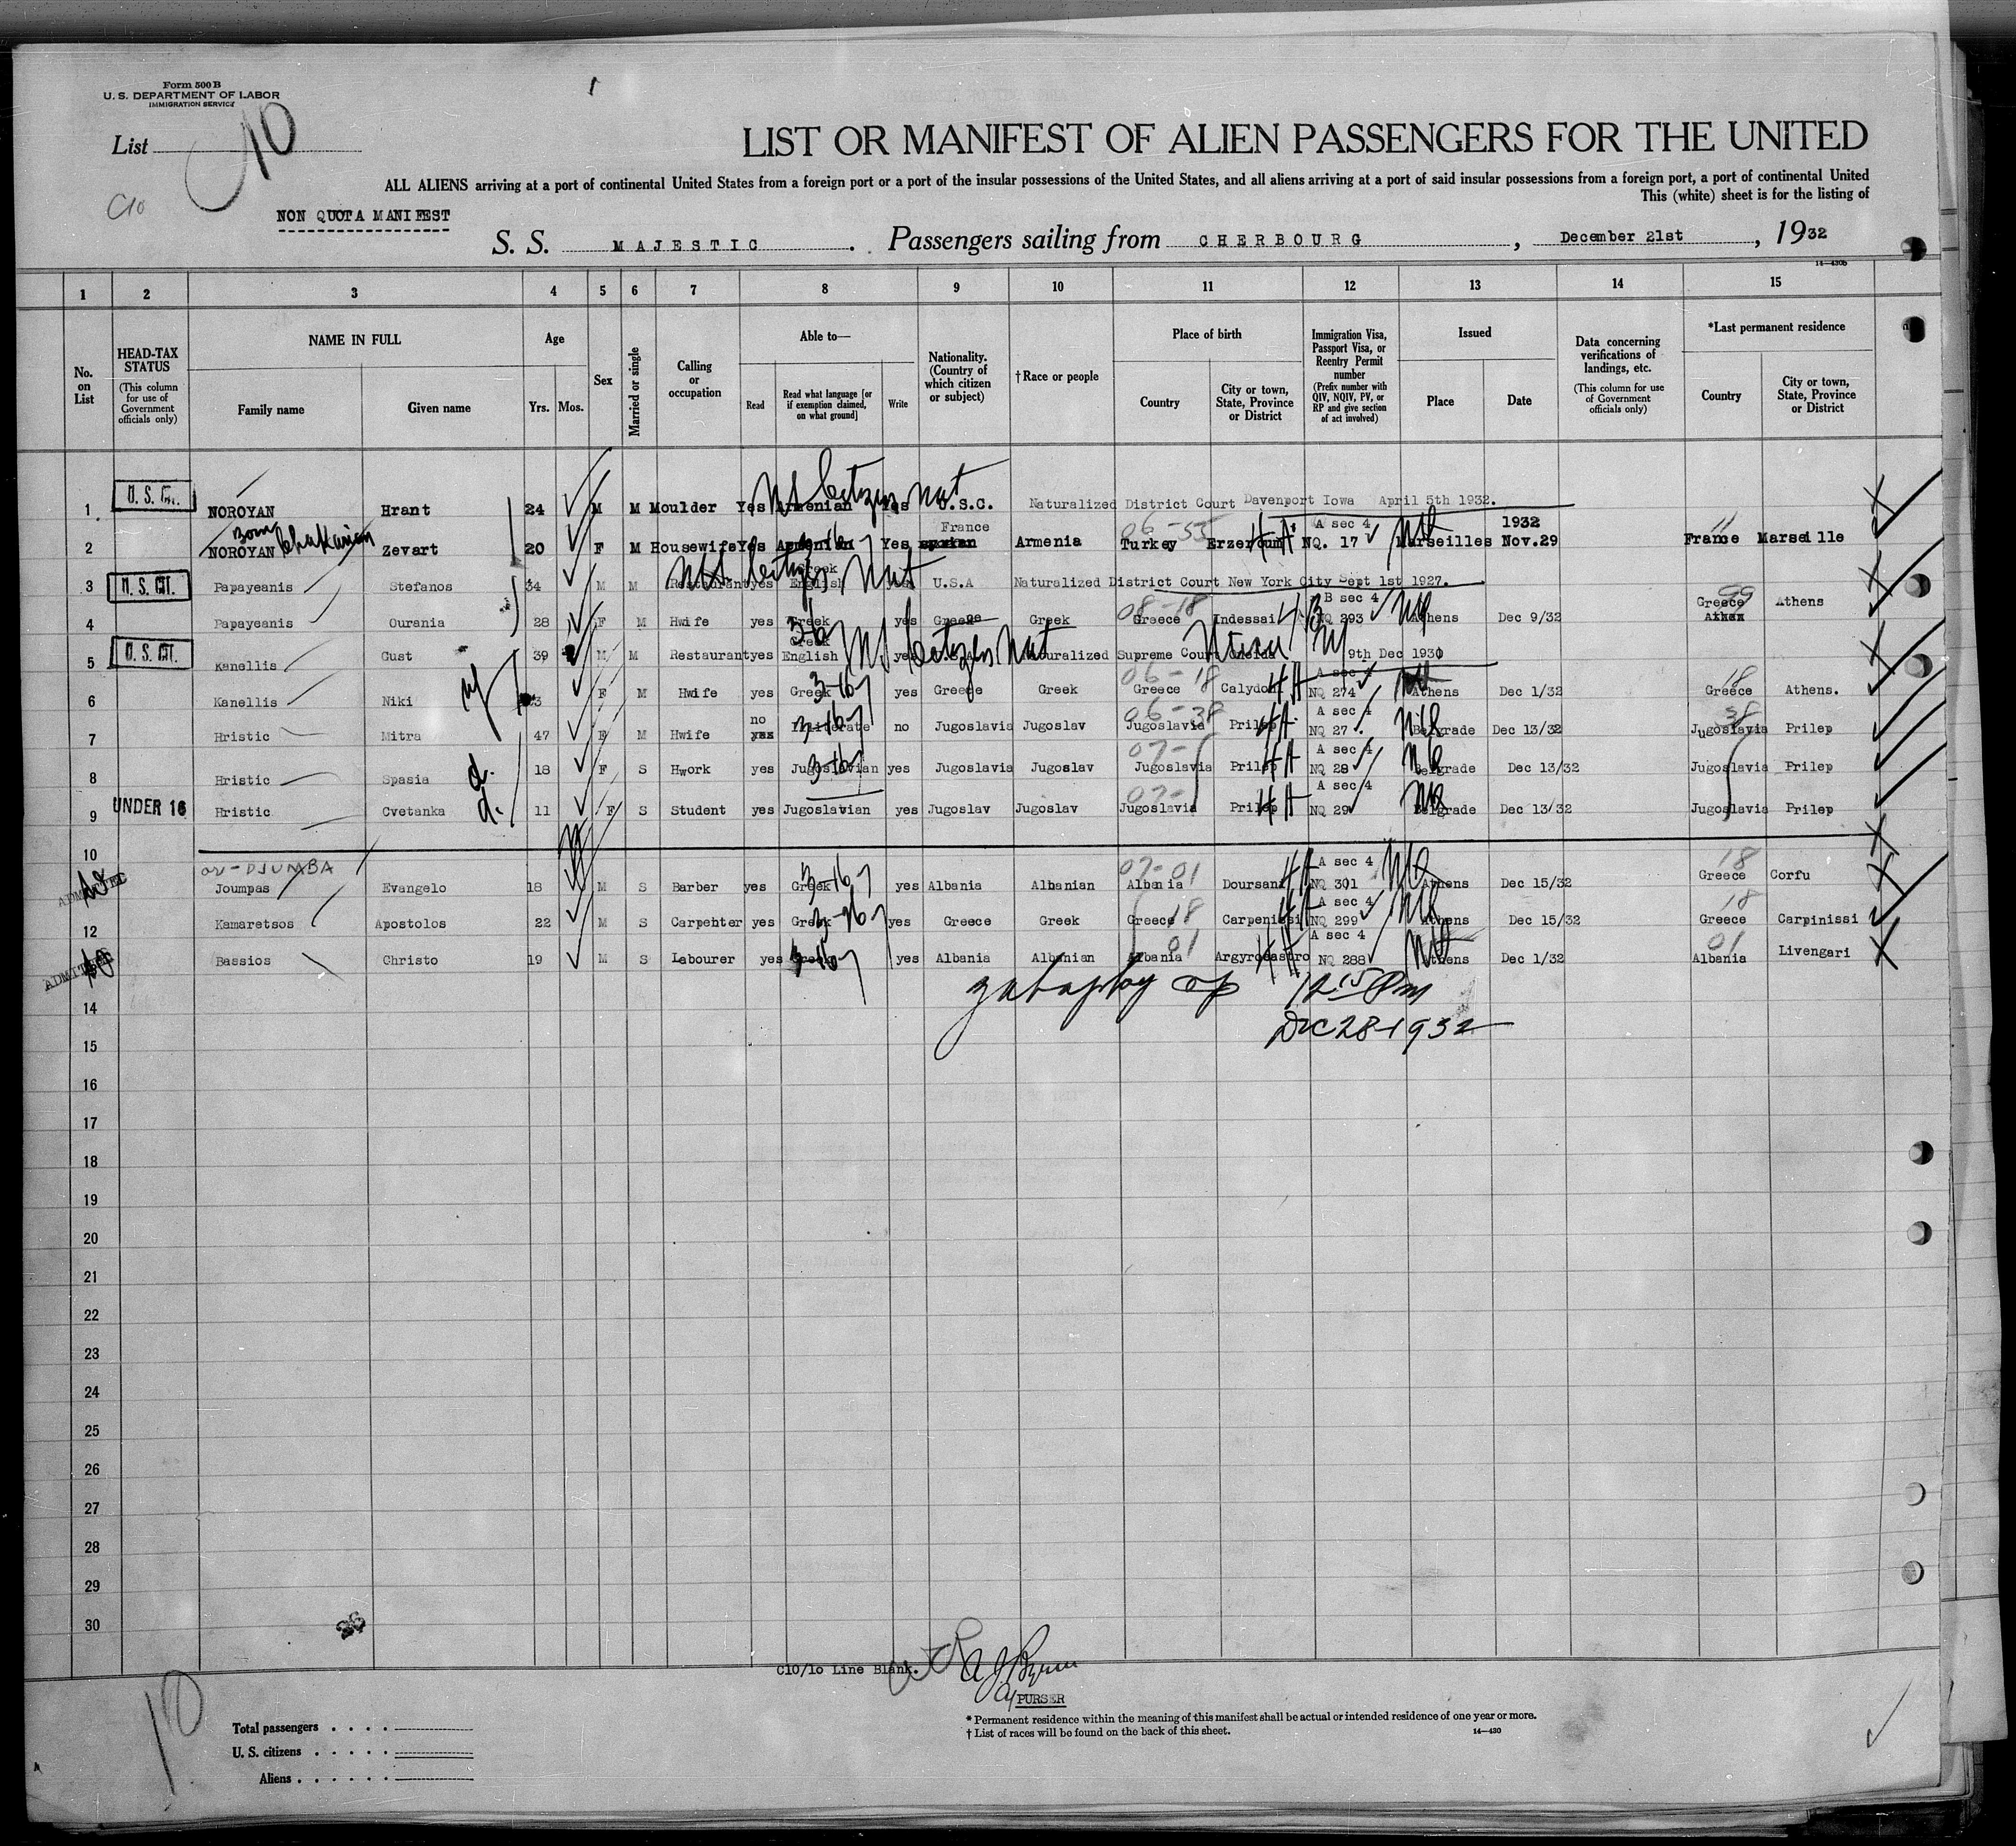 Form 500 B
U. S. DEPARTMENT OF LABOR
IMMIGRATION SERVICE
1
List 10
C10
LIST OR MANIFEST OF ALIEN PASSENGERS FOR THE UNITED
ALL ALIENS arriving at a port of continental United States from a foreign port or a port of the insular possessions of the United States, and all aliens arriving at a port of said insular possessions from a foreign port, a port of continental United
This (white) sheet is for the listing of
NON QUOTA MANIFEST
S. S. MAJESTIC . Passengers sailing from CHERBOURG , December 21st , 1932
14—430b
1 2 3 4 5 6 7 8 9 10 11 12 13 14 15
No. on List
HEAD-TAX STATUS (This column for use of Government officials only)
NAME IN FULL Family name Given name
Age Yrs. Mos.
Sex
Married or single
Calling or occupation
Able to— Read Read what language [or if exemption claimed, on what ground] Write
Nationality. (Country of which citizen or subject)
†Race or people
Place of birth Country City or town, State, Province or District
Immigration Visa, Passport Visa, or Reentry Permit number (Prefix number with QIV, NQIV, PV, or RP and give section of act involved)
Issued Place Date
Data concerning verifications of landings, etc. (This column for use of Government officials only)
*Last permanent residence Country City or town, State, Province or District
1 U. S. CIT. NOROYAN Hrant 24 M M Moulder Yes Armenian Yes U.S.C. Naturalized District Court Davenport Iowa April 5th 1932.
2 NOROYAN Zevart 20 F M Housewife Yes Armenian Yes France Armenia 06-55 Turkey Erzeroum A sec 4 NQ. 17 Marseilles 1932 Nov.29 11 France Marseille
3 U. S. CIT. Papayeanis Stefanos 34 M M Restaurant yes Greek English yes U.S.A Naturalized District Court New York City Sept 1st 1927.
4 Papayeanis Ourania 28 F M Hwife yes Greek yes Greece Greek 08-18 Greece Indessai B sec 4 NQ 293 Athens Dec 9/32 99 Greece Athens
5 U. S. CIT. Kanellis Gust 39 M M Restaurant yes Greek English yes Naturalized Supreme Court Oneida 9th Dec 1930
6 Kanellis Niki F M Hwife yes Greek yes Greece Greek 06-18 Greece Calydon A sec 4 NQ 274 Athens Dec 1/32 18 Greece Athens.
7 Hristic Mitra 47 F M Hwife no Illiterate no Jugoslavia Jugoslav 06-38 Jugoslavia Prilep A sec 4 NQ 27 Belgrade Dec 13/32 38 Jugoslavia Prilep
8 Hristic Spasia d. 18 F S Hwork yes Jugoslavian yes Jugoslavia Jugoslav 07- Jugoslavia Prilep A sec 4 NQ 28 Belgrade Dec 13/32 Jugoslavia Prilep
9 UNDER 16 Hristic Cvetanka d. 11 F S Student yes Jugoslavian yes Jugoslav Jugoslav 07- Jugoslavia Prilep A sec 4 NQ 29 Belgrade Dec 13/32 Jugoslavia Prilep
10
or - DJUMBA
ADMITTED Joumpas Evangelo 18 M S Barber yes Greek yes Albania Albanian 07-01 Albania Doursana A sec 4 NQ 301 Athens Dec 15/32 18 Greece Corfu
12 Kamaretsos Apostolos 22 M S Carpehter yes Greek yes Greece Greek 18 Greece Carpenissi A sec 4 NQ 299 Athens Dec 15/32 18 Greece Carpinissi
ADMITTED Bassios Christo 19 M S Labourer yes Greek yes Albania Albanian 01 Albania Argyrocastro A sec 4 NQ 288 Athens Dec 1/32 01 Albania Livengari
12 15 Pm
14
DEC 28 1932
15
16
17
18
19
20
21
22
23
24
25
26
27
28
29
30
C10/10 Line Blank.
PURSER
10
* Permanent residence within the meaning of this manifest shall be actual or intended residence of one year or more.
† List of races will be found on the back of this sheet. 14—430
Total passengers
U. S. citizens
Aliens